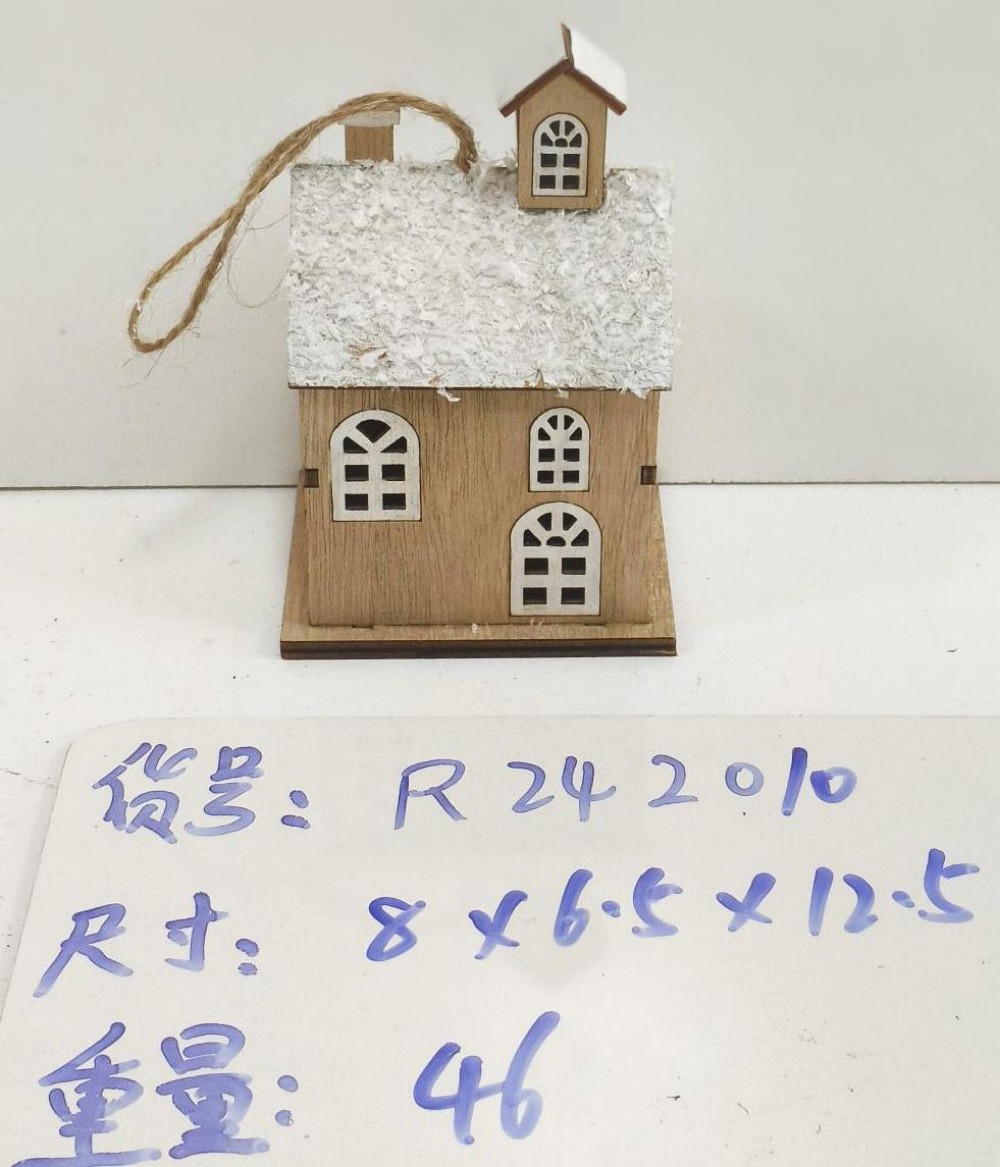 货号: R242010
尺寸: 8×6.5×12.5
重量: 46